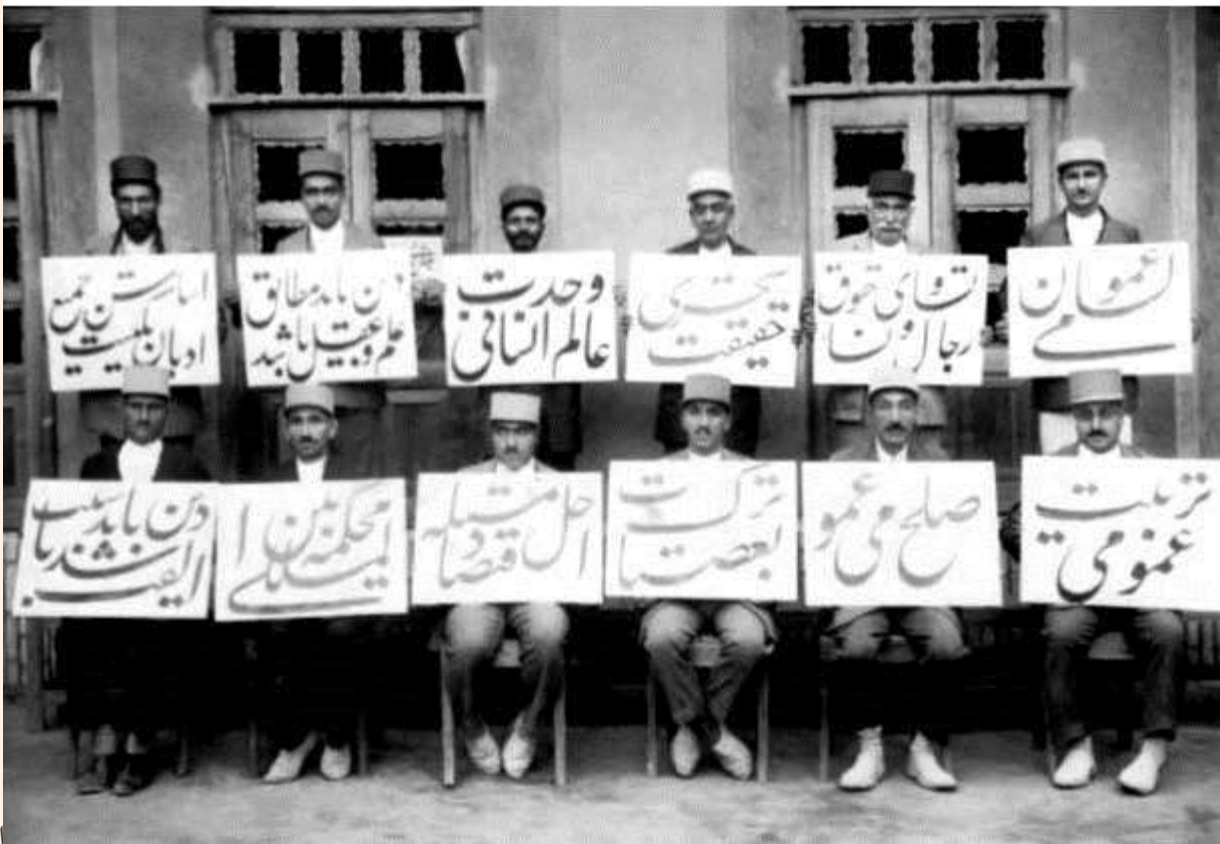 لسان عمومی
تساوی حقوق
رجال و نساء
تحری
حقیقت
وحدت
عالم انسانی
دین باید مطابق
علم و عقل باشد
اساس جمیع
ادیان یکیست
تربیت
عمومی
صلح عمومی
ترک
تعصبات
حل مسئله
اقتصاد
محکمه بین ا
لمللی
دین باید سبب
الفت باشد